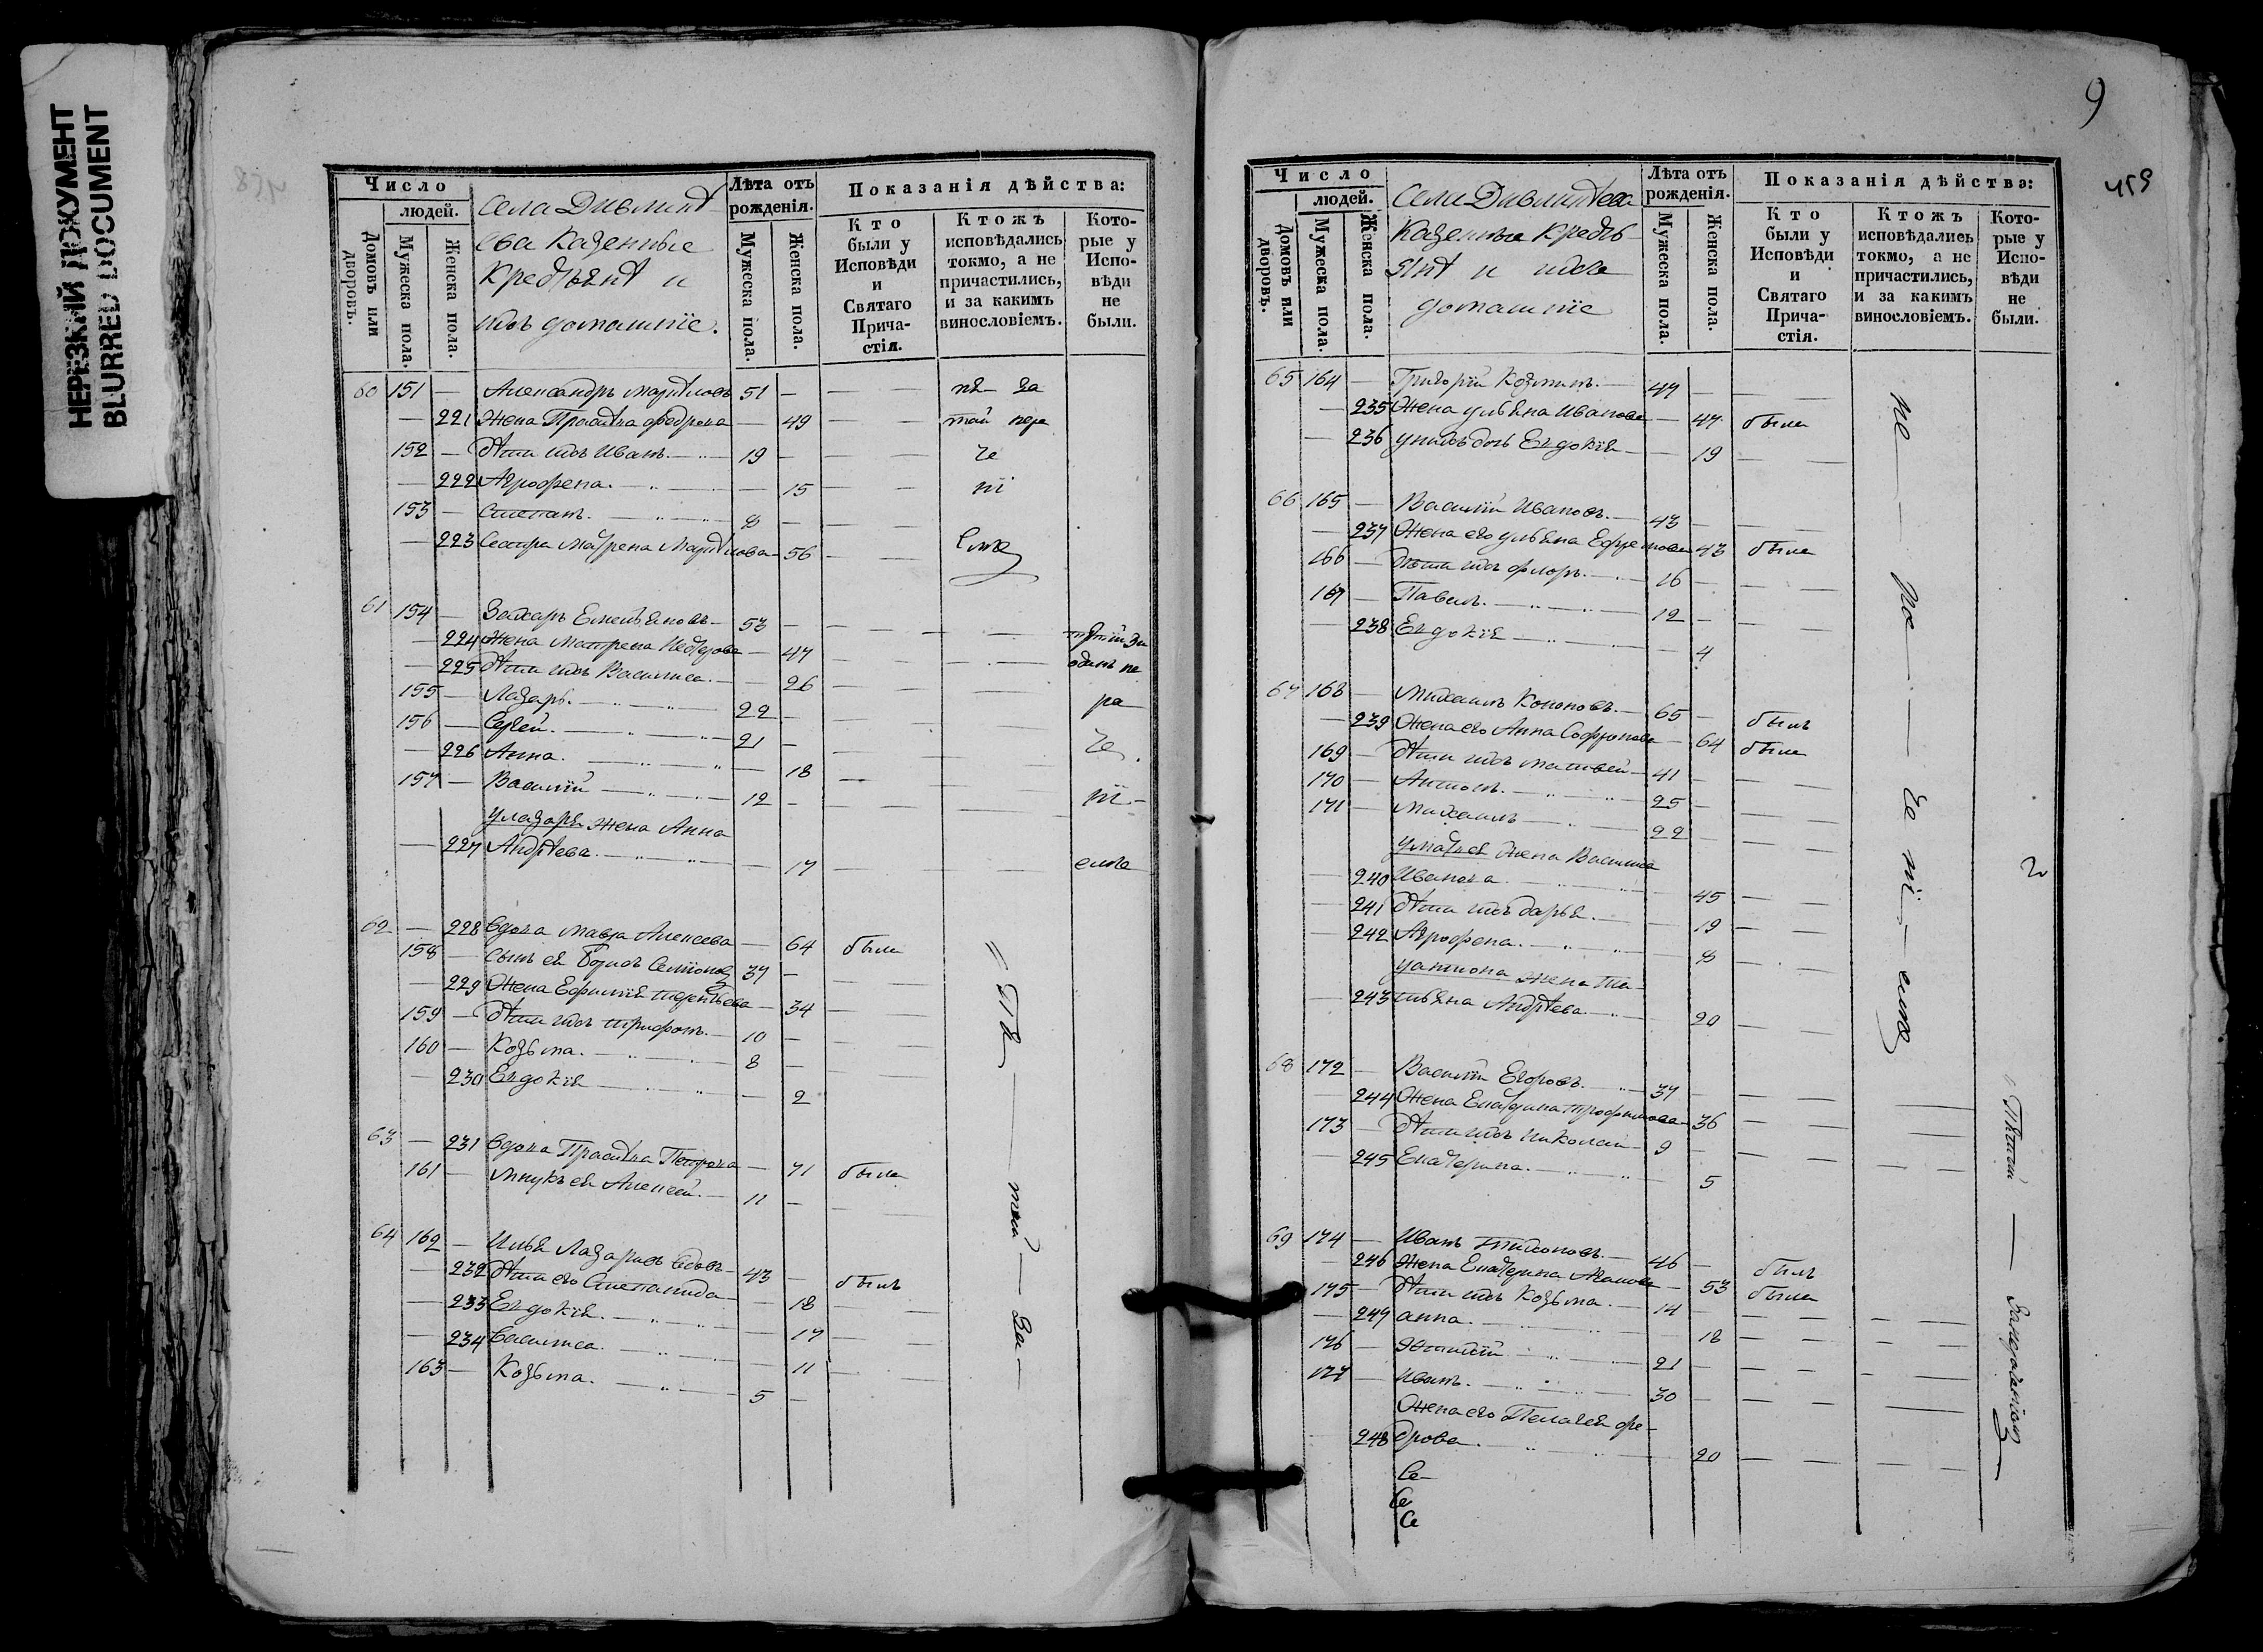 НЕРЕЗКИЙ ДОКУМЕНТ
BLURRED DOCUMENT
Число
людей.
Домовъ или дворовъ.
Мужеска пола.
Женска пола.
Села Дивлит
ева Казенные
и
ихъ домашнїе.
Лѣта отъ рожденія.
Мужеска пола.
Женска пола.
Показанія дѣйства:
Кто были у Исповѣди и Святаго Прича-стія.
Ктожъ исповѣдались токмо, а не причастились, и за какимъ винословіемъ.
Кото-рые у Испо-вѣди не были.
60 151 — Александръ 51 — — — за
— 221 Жена Праск. Федорова — 49 — —
152 — Дѣти ихъ Иванъ. — 19 — — — че
— 222 Агрофена. — — 15 — — нї
153 — Степанъ. — 8 — — —
— 223 Сестра Матрена — 56 — — емъ
61 154 — Захаръ Емельяновъ — 53 — — —
— 224 Жена Матрена — 47 — —
— 225 Дѣти ихъ Василиса. — — 26 — —
155 — Лазарь. — 22 — — — ра
156 — Сергѣй. — 21 — — — че
— 226 Анна. — — 18 — —
157 — Василїй — 12 — — — нї —
у Лазаря жена Анна
— 227 Андрѣева. — — 17 — — емъ
62 — 228 Вдова Мавра Алексеева — 64 была
158 — Сынъ ея Борисъ Семїоновъ 37 — —
— 229 Жена Ефимїя Терентьева — 34 —
159 — Дѣти ихъ Трифонъ. — 10 — —
160 — Козьма. — 8 — —
— 230 Евдокїя — — 2
63 — 231 Вдова Праск. Петрова — 71 была
161 — Внукъ ея Алексей. — 11 — —
64 162 — Илья Лазаревъ вдовъ — 43 — былъ
— 232 Дѣти его Степанида — — 18 —
— 233 Евдокїя. — — 17 —
— 234 Василиса. — — 11 —
163 — Козьма. — 5 —
— за —
9
459
Число
людей.
Домовъ или дворовъ.
Мужеска пола.
Женска пола.
Села Дивлитева
Казенные
и ихъ
домашнїе
Лѣта отъ рожденія.
Мужеска пола.
Женска пола.
Показанія дѣйства:
Кто были у Исповѣди и Святаго Прича-стія.
Ктожъ исповѣдались токмо, а не причастились, и за какимъ винословіемъ.
Кото-рые у Испо-вѣди не были.
65 164 — Григорїй Козминъ. — 47 — — —
— 235 Жена Ульяна Иванова — 47 была
— 236 у нихъ дочь Евдокїя — — 19 — —
66 165 — Василїй Ивановъ. — 43 — — —
— 237 Жена его Ульяна Ефремова 43 была
166 — Дѣти ихъ Флоръ. — 16 — — —
167 — Павелъ. — 12 — —
— 238 Евдокїя — — 4
67 168 — Михаилъ Кононовъ. — 65 — былъ
— 239 Жена его Анна Софронова — 64 была
169 — Дѣти ихъ Матвей — 41 — — —
170 — Антонъ. — 25 — — —
171 — Михаилъ — 22 — — —
у Матвея жена Василиса
— 240 Иванова. — — 45 — —
— 241 Дѣти ихъ Дарья. — — 19 — —
— 242 Агрофена. — — 8 — —
у Антона жена Та-
— 243 тьяна Андрѣева. — — 20 — —
68 172 — Василїй Егоровъ. — 37 — — —
— 244 Жена Екатерина Трофимова — 36 — —
173 — Дѣти ихъ Николай — 9 — — —
— 245 Екатерина. — — 5
69 174 — Иванъ Тихоновъ. — 46 — былъ
— 246 Жена Екатерина — 53 была
175 — Дѣти ихъ Козьма. — 14 — — —
— 247 Анна. — — 18 — —
176 — — 21 — — —
177 — Иванъ. — 30 — — —
Жена его Пелагея Фе-
— 248 дорова. — — 20 — —
Се
Се
Се
не — ре — че нї — емъ